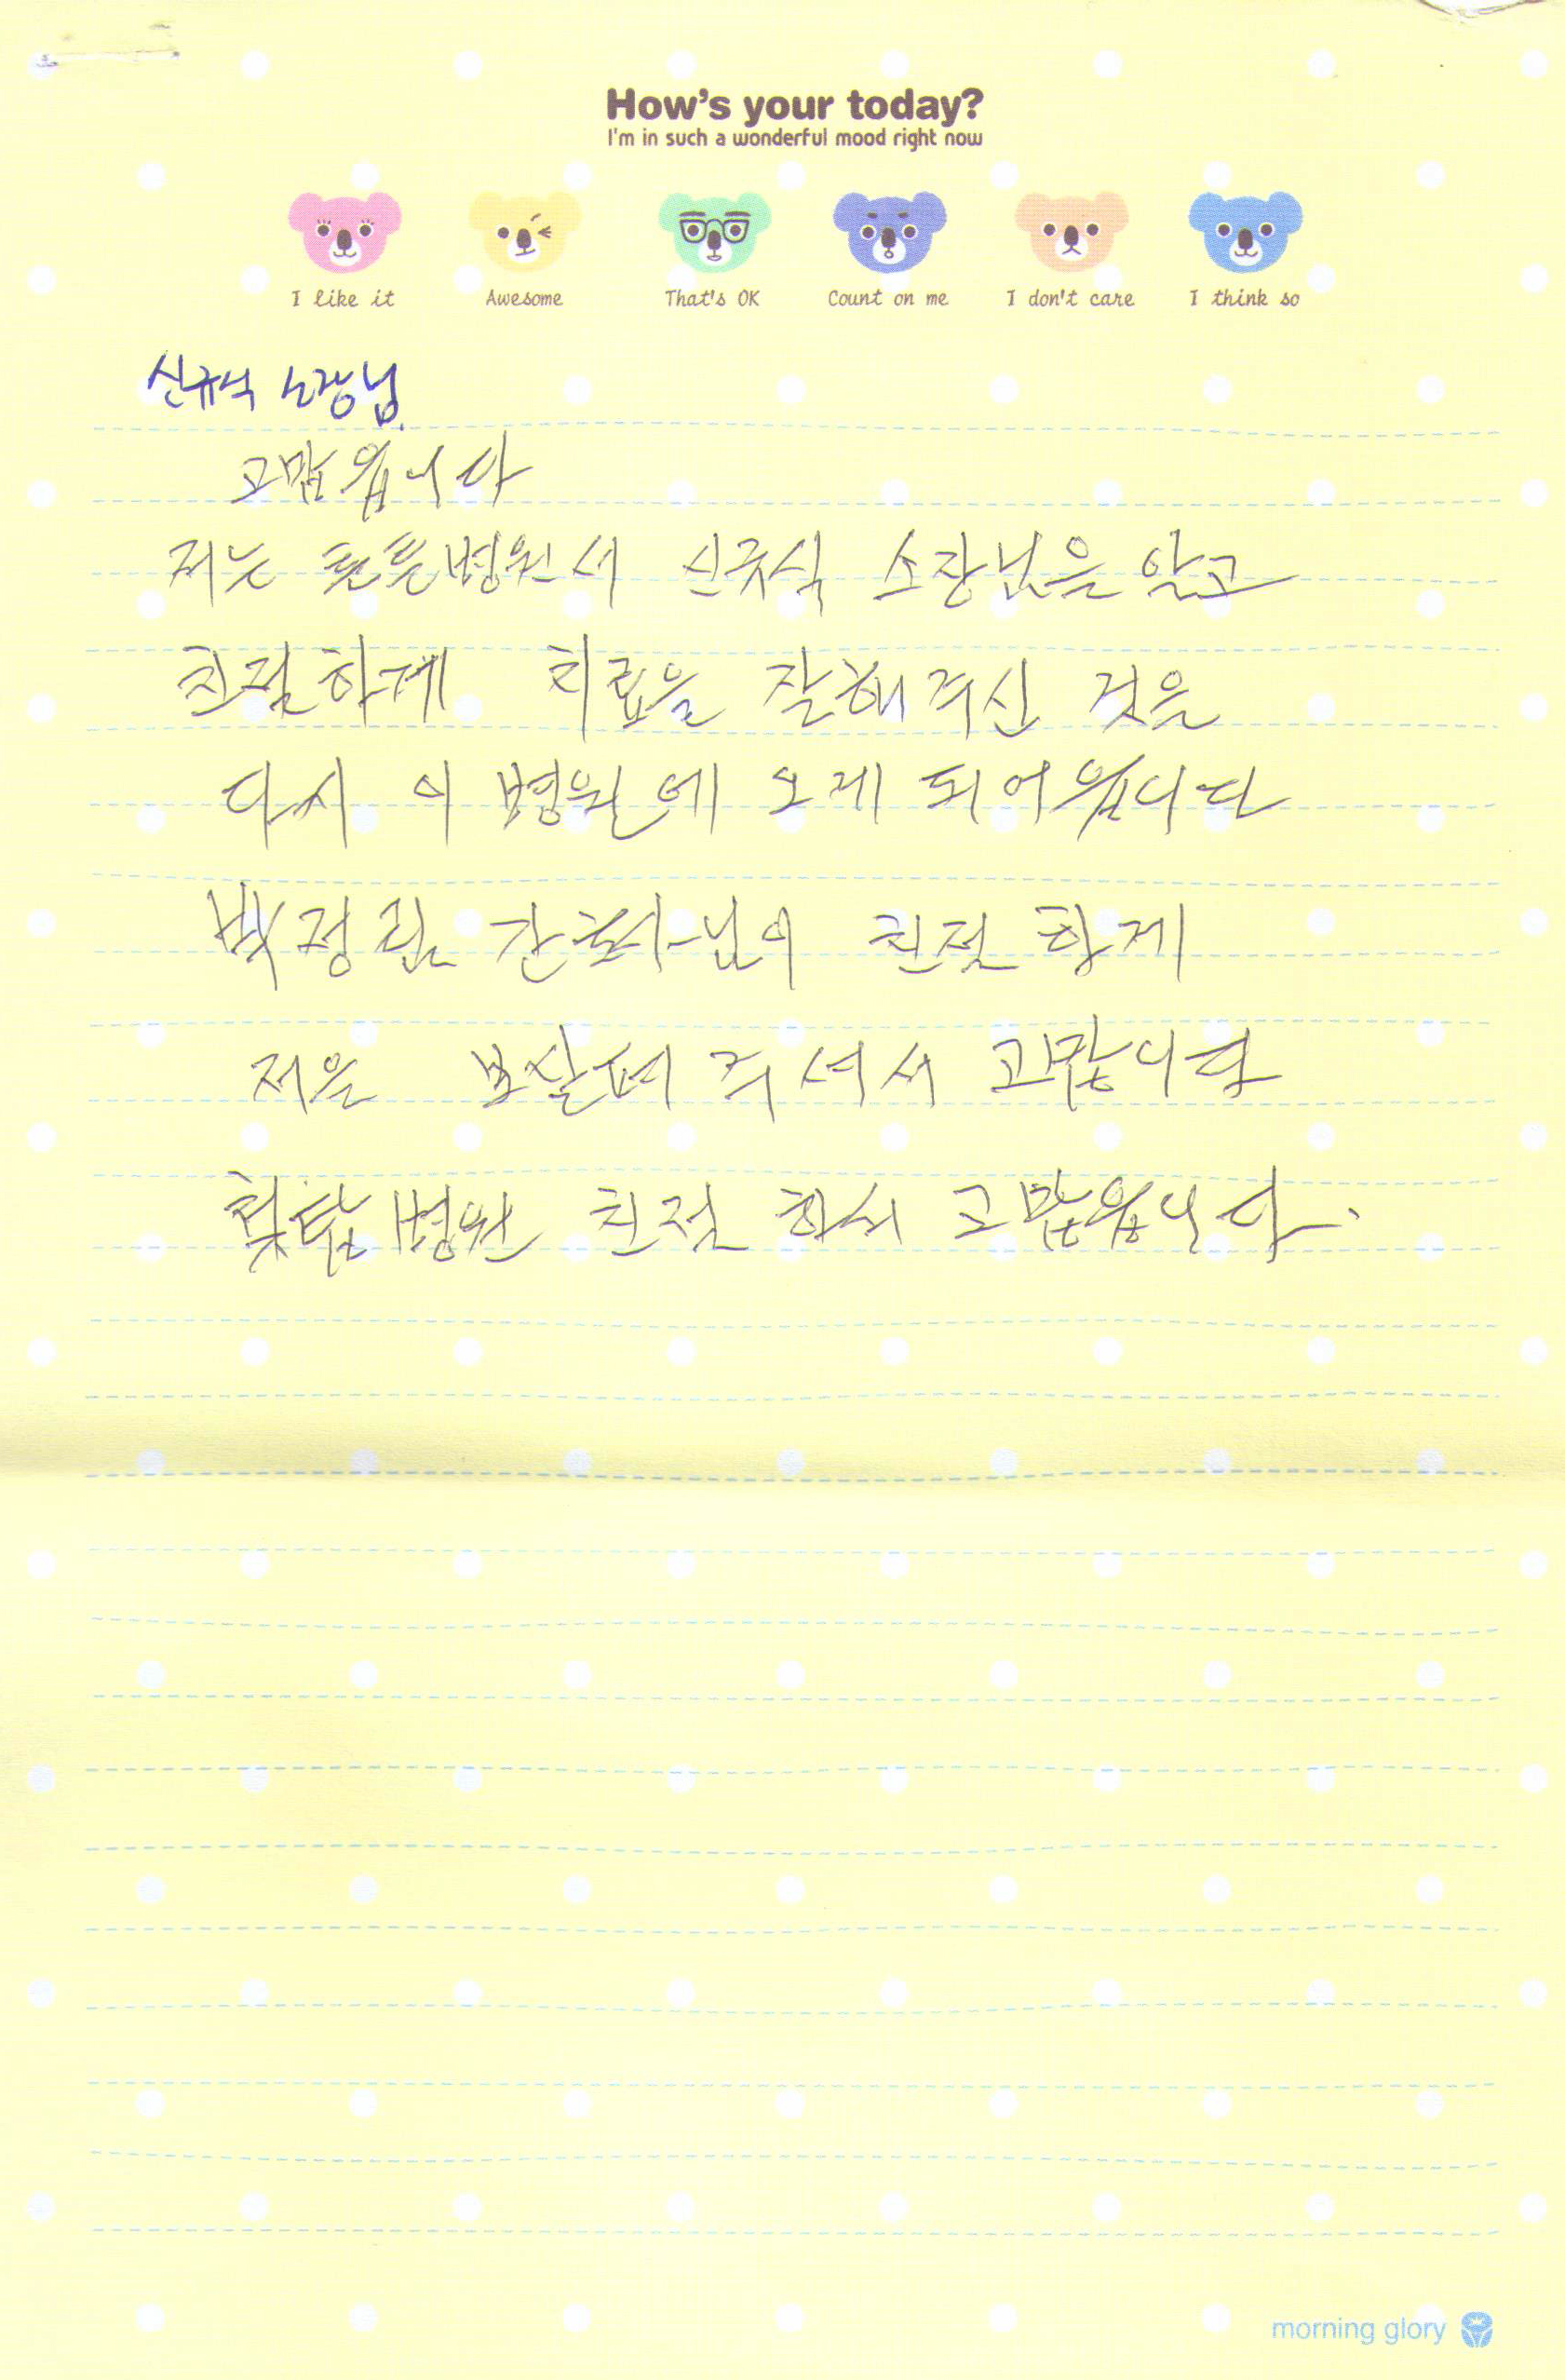 How's your today?
I'm in such a wonderful mood right now
I like it Awesome That's OK Count on me I don't care I think so
신규식 소장님.
고맙읍니다
저는 튼튼병원서 신규식 소장님을 알고
친절하게 치료을 잘해주신 것을
다시 이 병원에 오게 되어읍니다
박정림 간호사님이 친절 하게
저을 보살펴 주셔서 고맙니다
병원 친절 하서 고맙읍니다.
morning glory